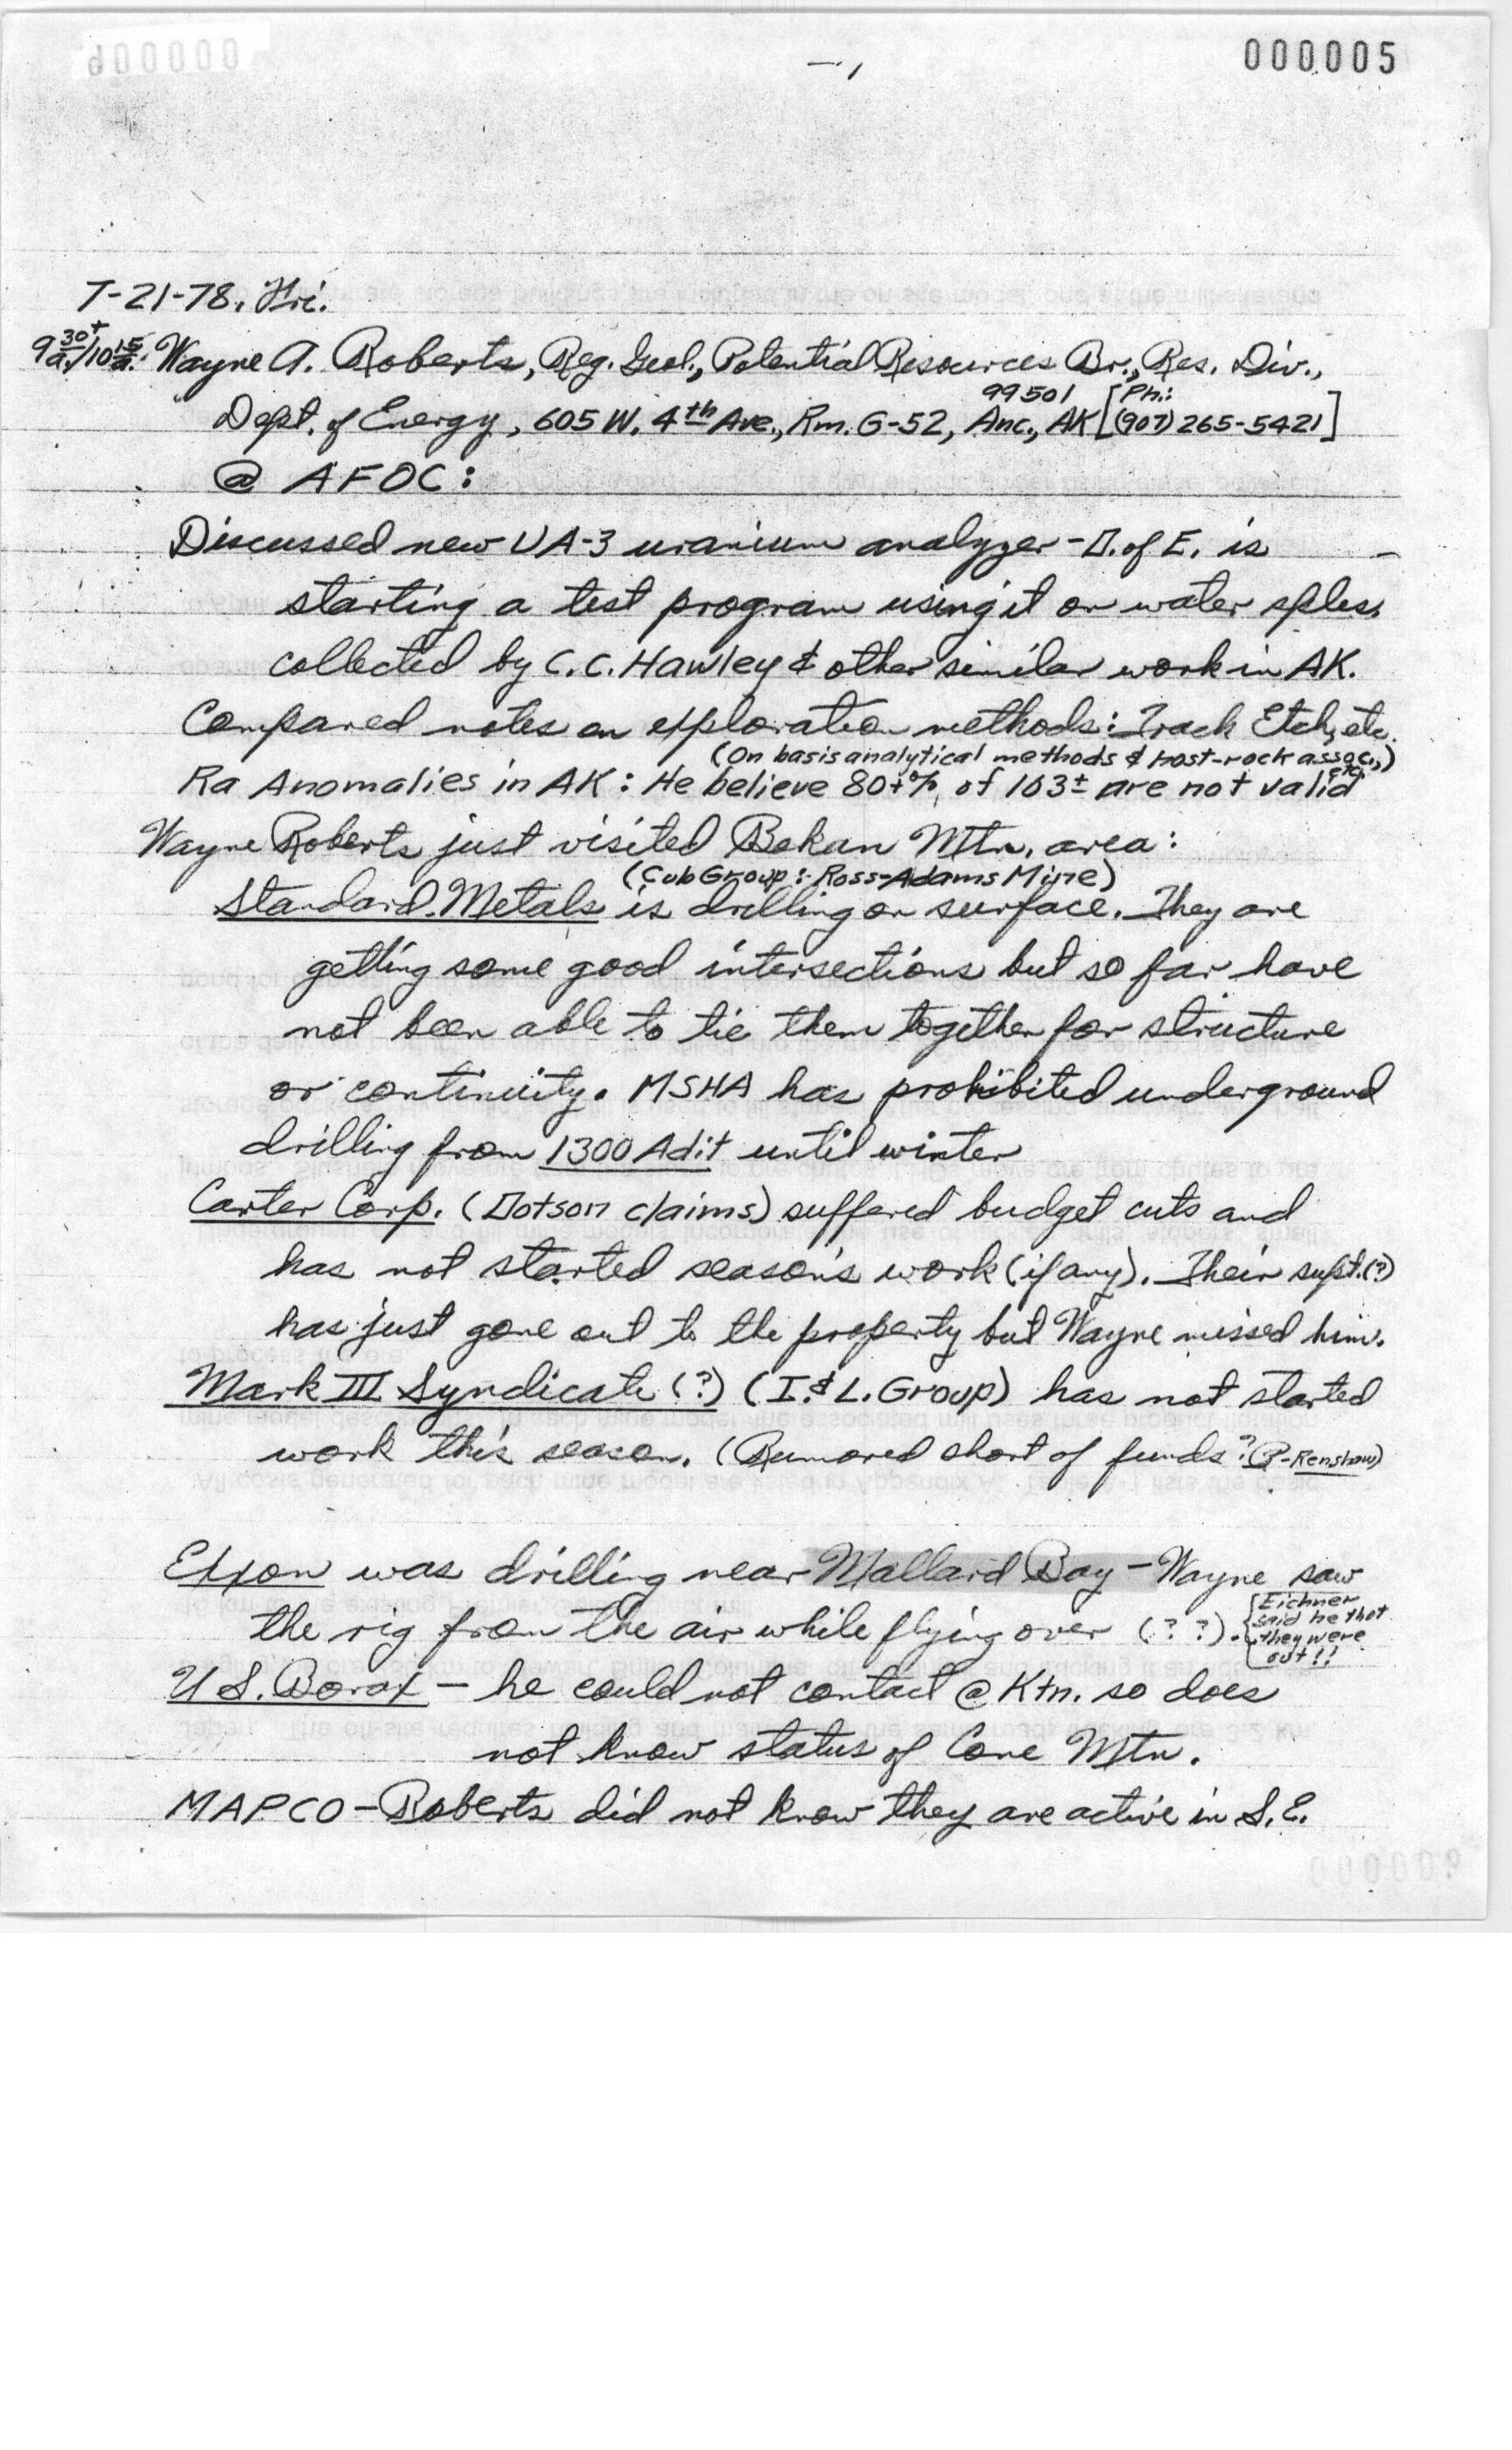 000005
7-21-78, Fri.
9 30+ a./10 15 a. Wayne A. Roberts, Reg. Geol., Potential Resources Br., Res. Div.,
99501 [Ph.:
Dept. of Energy, 605 W. 4th Ave., Rm. G-52, Anc., AK (907) 265-5421]
@ AFOC:
Discussed new UA-3 uranium analyzer - D. of E. is
starting a test program using it on water sples.
collected by C.C. Hawley & other similar work in AK.
Compared notes on exploration methods: Track Etch, etc.
(On basis analytical methods & host-rock assoc., etc.)
Ra Anomalies in AK: He believe 80+% of 103± are not valid
Wayne Roberts just visited Bokan Mtn. area:
(Cub Group: Ross-Adams Mine)
Standard Metals is drilling on surface. They are
getting some good intersections but so far have
not been able to tie them together for structure
or continuity. MSHA has prohibited underground
drilling from 1300 Adit until winter
Carter Corp. (Dotson claims) suffered budget cuts and
has not started season's work (if any). Their supt.(?)
has just gone out to the property but Wayne missed him.
Mark III Syndicate (?) (I. & L. Group) has not started
work this season. (Rumored short of funds? -Renshaw)
Exxon was drilling near Mallard Bay - Wayne saw
the rig from the air while flying over (??). [Eichner
said he thot
they were
out!!
U.S. Borax - he could not contact @ Ktn. so does
not know status of Cone Mtn.
MAPCO - Roberts did not know they are active in S.E.